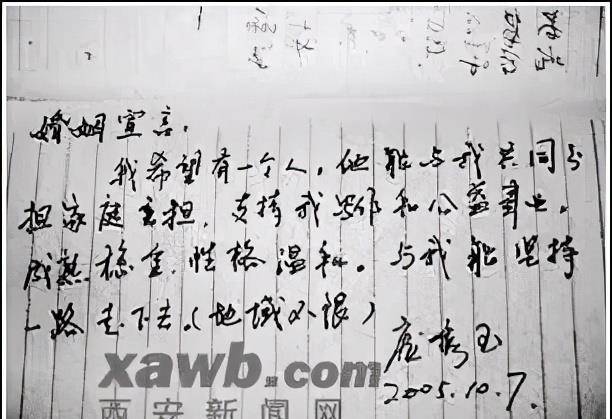 婚姻宣言:
我希望有一个人,他能与我共同分
担家庭重担,支持我写作和公益事业,
成熟稳重,性格温和。与我能坚持
一路走下去。(地域不限)
2005.10.7.
xawb.com
西安新闻网